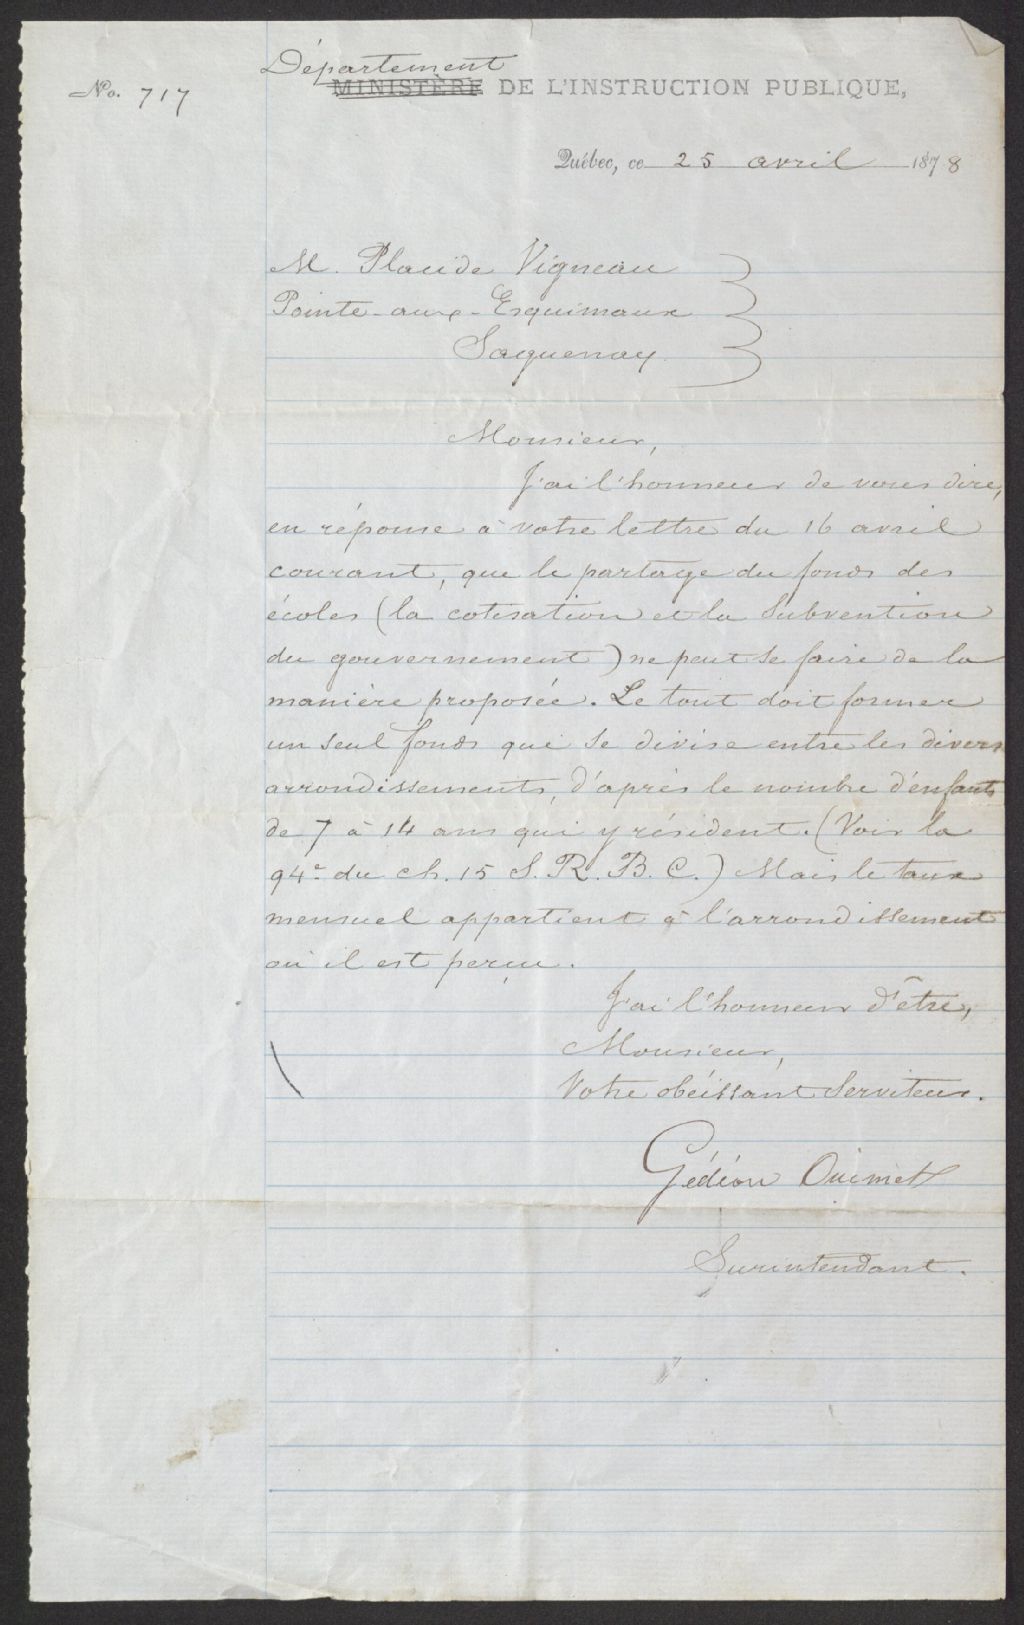 Département
No. 717 MINISTÈRE DE L'INSTRUCTION PUBLIQUE,
Québec, ce 25 avril 1878
M. Placide Vigneau
Pointe-aux-Esquimaux
Saguenay.
Monsieur,
J'ai l'honneur de vous dire,
en réponse à votre lettre du 16 avril
courant, que le partage du fonds des
écoles (la cotisation et la subvention
du gouvernement) ne peut se faire de la
manière proposée. Le tout doit former
un seul fonds qui se divise entre les divers
arrondissements, d'après le nombre d'enfants
de 7 à 14 ans qui y résident. (Voir la
94e du ch. 15 S. R. B. C.) Mais le taux
mensuel appartient à l'arrondissement
où il est perçu.
J'ai l'honneur d'être,
Monsieur,
Votre obéissant serviteur.
Gédéon Ouimet
Surintendant.